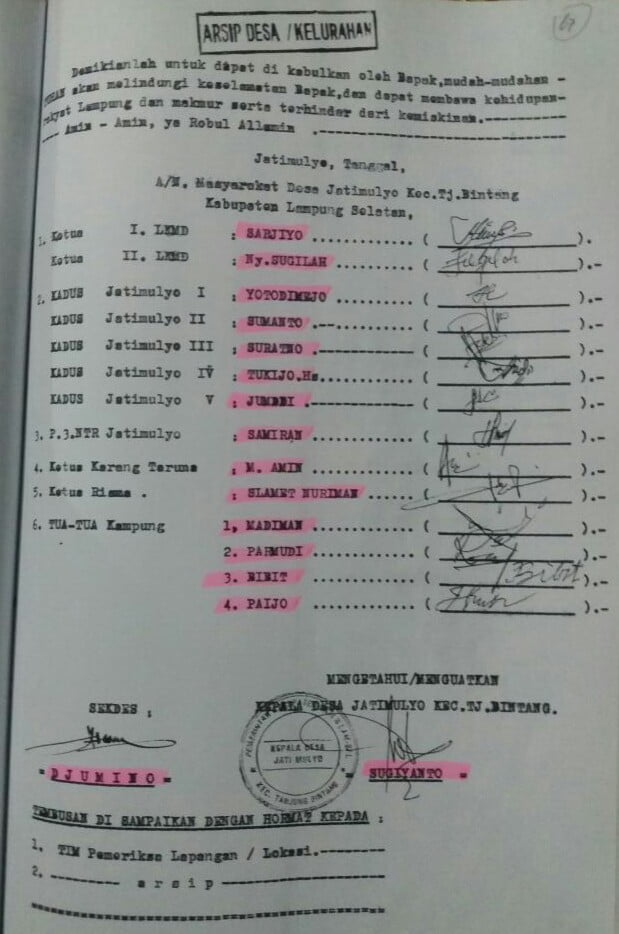 ARSIP DESA / KELURAHAN
67
Demikianlah untuk dapat di kabulkan oleh Bapak,mudah-mudahan -
TUHAN akan melindungi keselamatan Bapak,dan dapat membawa kehidupan-
rakyat Lampung dan makmur serta terhindar dari kemiskinan.------
--- Amin - Amin, ya Robul Allamin .---------------------
Jatimulyo, Tanggal,
A/N. Masyarakat Desa Jatimulyo Kec.Tj.Bintang
Kabupaten Lampung Selatan,
1. Ketua I. LKMD : SARJIYO ............. ( ).
Ketua II. LKMD : Ny.SUGILAH ........... ( ).-
2. KADUS Jatimulyo I : YOTODIMEJO ........... ( ).-
KADUS Jatimulyo II : SUMANTO .--.......... ( ).-
KADUS Jatimulyo III : SURATNO .------------ ( ).-
KADUS Jatimulyo IV : TUKIJO.Hs............ ( ).-
KADUS Jatimulyo V : .------------- ( ).-
3. P.3.NTR Jatimulyo : SAMIRAN ............. ( ).-
4. Ketua Karang Taruna : M. AMIN ............. ( ).-
5. Ketua Risma . : SLAMET NURIMAN ....... ( ).-
6. TUA-TUA Kampung 1, MADIMAN ............. ( ).-
2. PARMUDI ............. ( ).-
3. BIBIT ............... ( Bibit ).-
4. PAIJO ............... ( ).-
MENGETAHUI/MENGUATKAN
SEKDES : KEPALA DESA JATIMULYO KEC.TJ.BINTANG.
KEPALA DESA
JATI MULYO
KEC. TANJUNG BINTANG
= D J U M I N O = = SUGIYANTO =
TEMBUSAN DI SAMPAIKAN DENGAN HORMAT KEPADA :
1. TIM Pemeriksa Lapangan / Lokasi.---------
2. --------- a r s i p --------------------